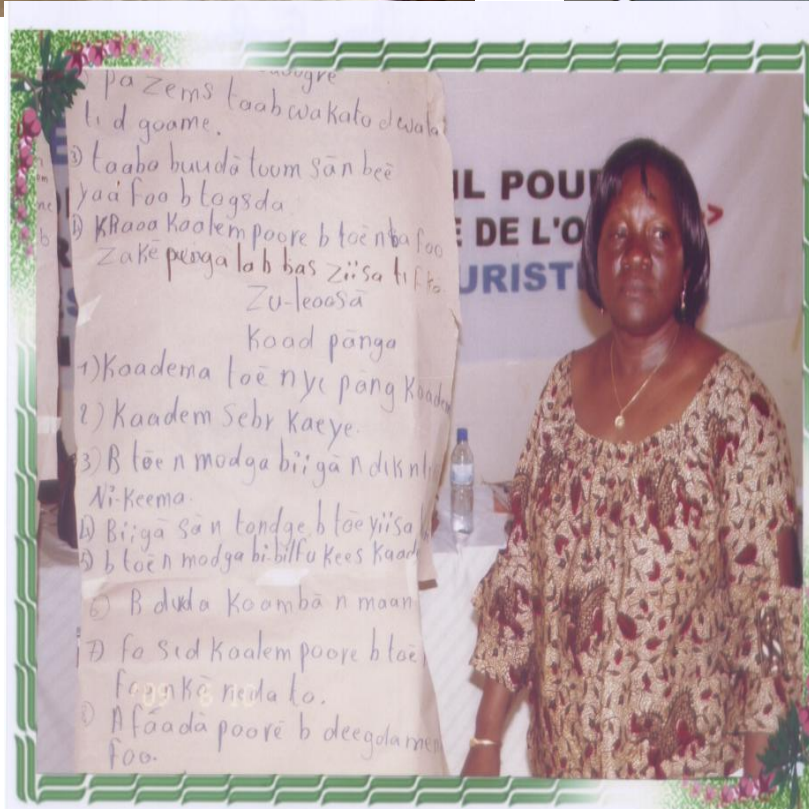 pa zems taab wakato d wata
ti d goame.
3) taaba buudã tuum sãn beẽ
yaá foo b togsda
4) KRaoa Kaalem poore b toẽ n ba foo
zakẽ penga la b bas ziisa ti f kõ
Zu-loɛɛsã
Kaad pãnga
1) Kaadema toẽ nyɛ pãng Kaadem
2) Kaadem Sebr Kaeye.
3) B tõe n modga biigã n dɩk nti
Ni-Keema.
4) Biigã sã n tondge b tõe yiisa
5) b toẽ n modga bi-bilfu kees Kaad
6) B duda Koambã n maan
7) fo sɩd Kaalem poore b toẽ
n kõ neda to.
8) A fãadã poorẽ b deegda men
foo.
IL POU
E DE L'O >
URISTE